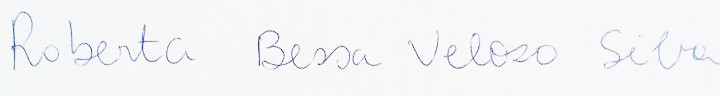 Roberta Bessa Veloso Silva